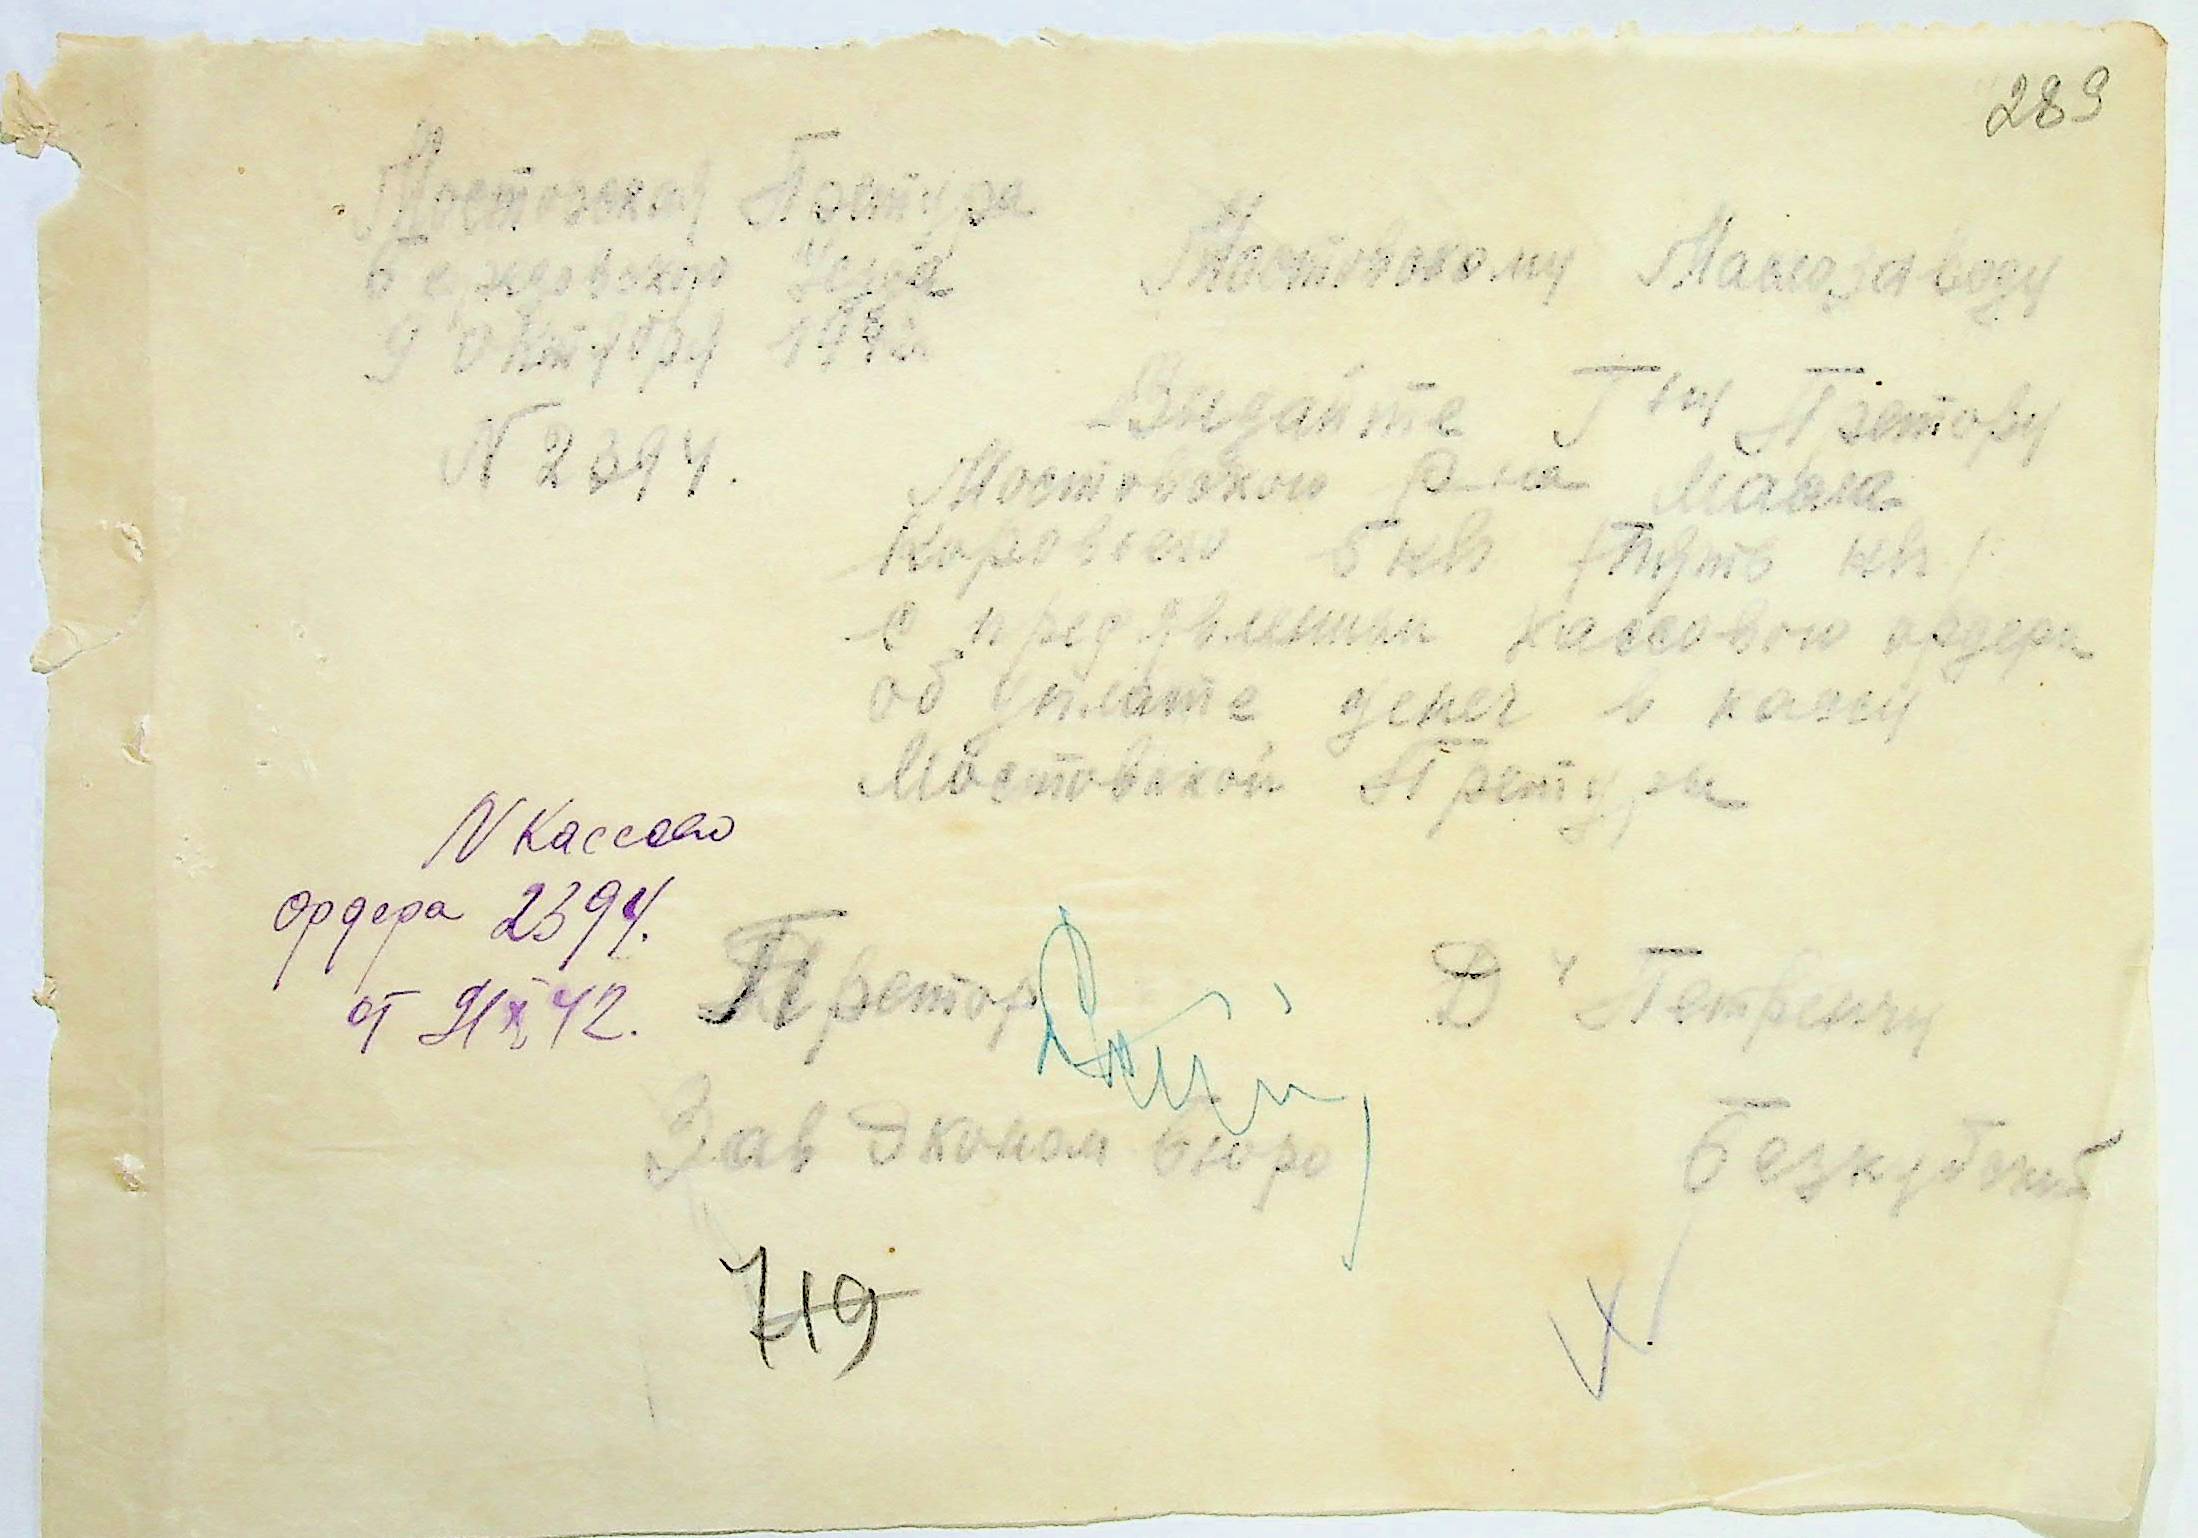 289
Мостовская Претура
Березовского Уезда
9 Октября 1942
N 2394.
Мостовскому Маслозаводу
Выдайте Г-ну Претору
Мостовского р-на масла
Коровьего 5 кгр (пять кгр)
с предявлением кассового ордера
об уплате денег в кассу
Мостовской Претуры
N Кассово
ордера 2394.
от 9/X 42.
Претор
Д-ч Петренчу
Зав Эконом бюро
719